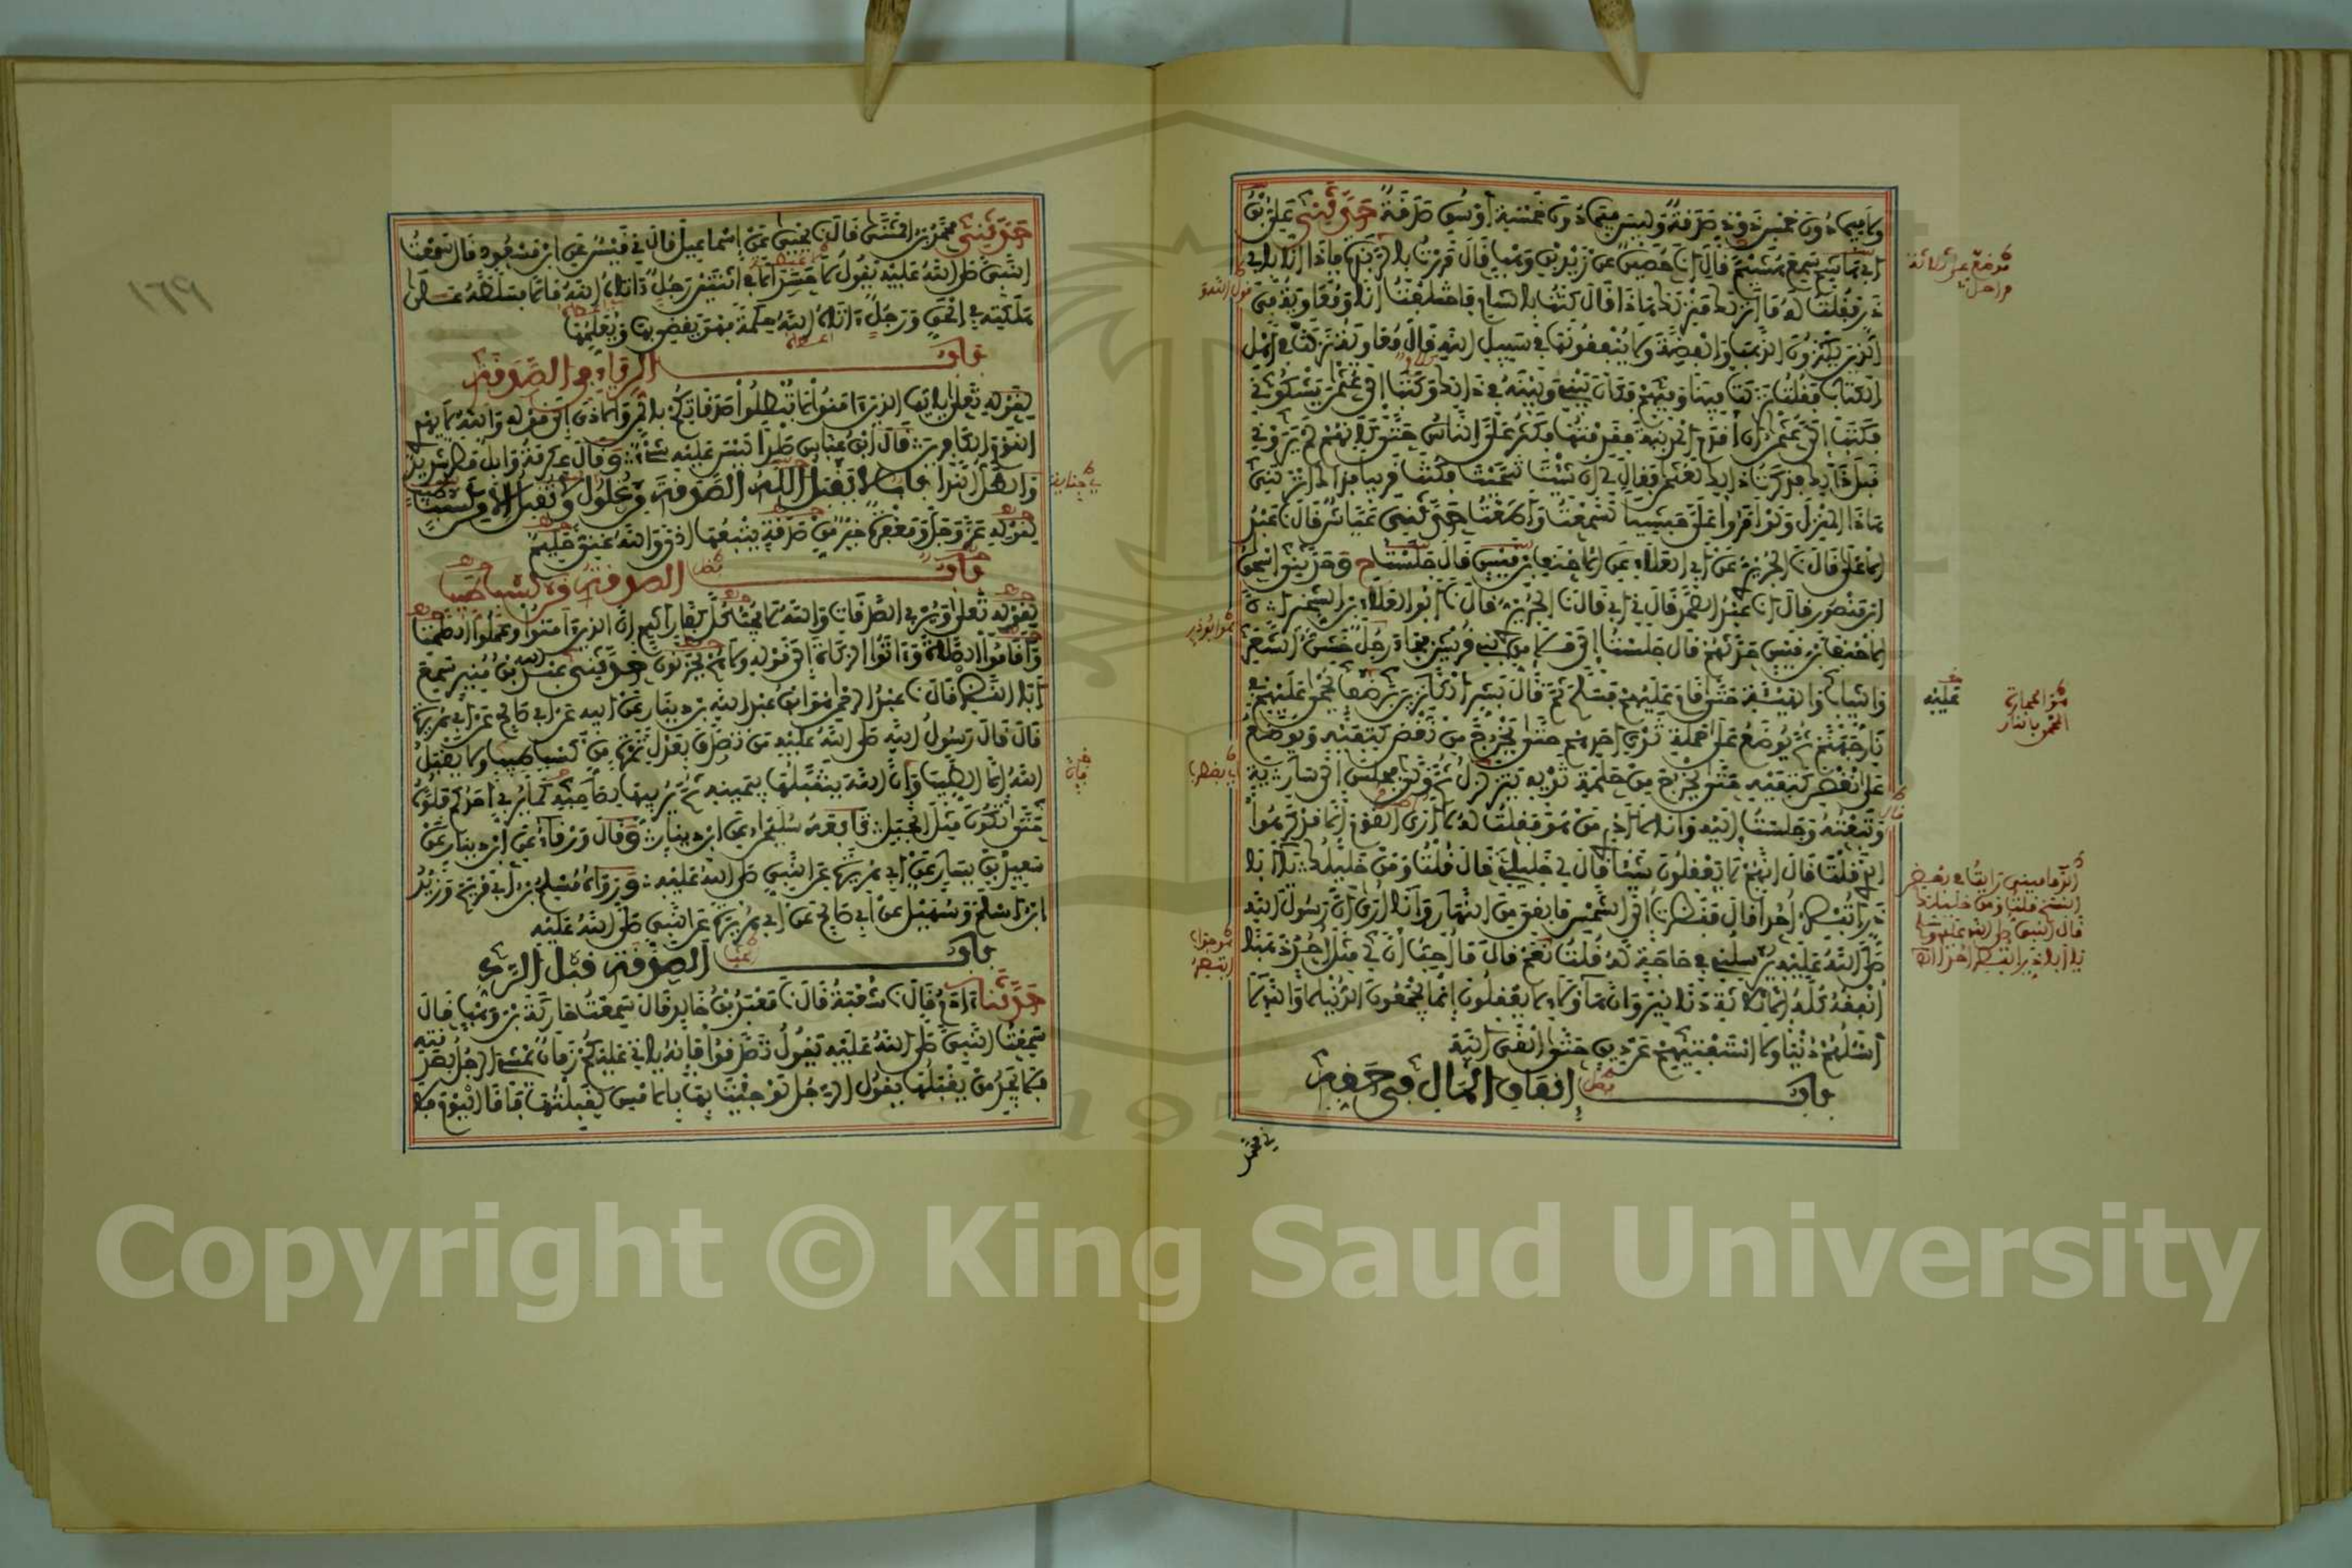 ولا فيما دون خمس ذود صدقة وليس فيما دون خمسة أوسق صدقة حدثني علي بن
أبي هاشم سمع هشيما قال أنا حصين عن زيد بن وهب قال مررت بالربذة فإذا أنا بأبي
ذر فقلت له ما أنزلك منزلك هذا قال كنت بالشام فاختلفت أنا ومعاوية في
الذين يكنزون الذهب والفضة ولا ينفقونها في سبيل الله قال معاوية نزلت في أهل
الكتاب فقلت نزلت فينا وفيهم فكان بيني وبينه في ذلك وكتب إلى عثمن يشكوني
فكتب إلي عثمن أن أقدم المدينة فقدمتها فكثر علي الناس حتى كأنهم لم يروني
قبل ذلك فذكرت ذلك لعثمن فقال لي إن شئت تنحيت فكنت قريبا فذاك الذي أنزلني
هذا المنزل ولو أمروا علي حبشيا لسمعت وأطعت حدثني عياش قال نا عبد
الأعلى قال نا الجريري عن أبي العلاء عن الأحنف بن قيس قال جلست ح وحدثني إسحق
ابن منصور قال أنا عبد الصمد قال ني أبي قال نا الجريري قال نا أبو العلاء بن الشخير أن
الأحنف بن قيس حدثهم قال جلست إلى ملإ من قريش فجاء رجل خشن الشعر
والثياب والهيئة حتى قام عليهم فسلم ثم قال بشر الكانزين برضف يحمى عليهم في
نار جهنم ثم يوضع على حلمة ثدي أحدهم حتى يخرج من نغض كتفه ويوضع
على نغض كتفه حتى يخرج من حلمة ثديه يتزلزل ثم ولى فجلس إلى سارية
وتبعته وجلست إليه وأنا لا أدري من هو فقلت له لا أرى القوم إلا قد كرهوا
الذي قلت قال إنهم لا يعقلون شيئا قال لي خليلي قال قلت ومن خليلك يا أبا
ذر أتبصر أحدا قال فنظرت إلى الشمس ما بقي من النهار وأنا أرى أن رسول الله
صلى الله عليه يرسلني في حاجة له قلت نعم قال ما أحب أن لي مثل أحد ذهبا
أنفقه كله إلا ثلاثة دنانير وإن هؤلاء لا يعقلون إنما يجمعون الدنيا لا والله لا
أسئلهم دنيا ولا أستفتيهم عن دين حتى ألقى الله
باب إنفاق المال في حقه
حدثني محمد بن المثنى قال نا يحيى عن إسماعيل قال ني قيس عن ابن مسعود قال سمعت
النبي صلى الله عليه يقول لا حسد إلا في اثنتين رجل آتاه الله مالا فسلطه على
هلكته في الحق ورجل آتاه الله حكمة فهو يقضي بها ويعلمها
باب الرياء في الصدقة
لقوله تعلى يا أيها الذين آمنوا لا تبطلوا صدقاتكم بالمن والأذى إلى قوله والله لا يهدي
القوم الكافرين قال ابن عباس صلدا ليس عليه شيء وقال عكرمة وابل مطر شديد
والطل الندا باب لا تقبل الله الصدقة من غلول ولا تقبل إلا من كسب طيب
لقوله عز وجل ومغفرة خير من صدقة يتبعها أذى والله غني حليم
باب الصدقة من كسب طيب
لقوله تعلى ويربي الصدقات والله لا يحب كل كفار أثيم إن الذين آمنوا وعملوا الصالحات
وأقاموا الصلاة وآتوا الزكاة إلى قوله ولا هم يحزنون حدثني عبد الله بن منير سمع
أبا النضر قال نا عبد الرحمن هو ابن عبد الله بن دينار عن أبيه عن أبي صالح عن أبي هريرة
قال قال رسول الله صلى الله عليه من تصدق بعدل تمرة من كسب طيب ولا يقبل
الله إلا الطيب وإن الله يتقبلها بيمينه ثم يربيها لصاحبه كما يربي أحدكم فلوه
حتى تكون مثل الجبل تابعه سليمان عن ابن دينار وقال ورقاء عن ابن دينار عن
سعيد بن يسار عن أبي هريرة عن النبي صلى الله عليه ورواه مسلم بن أبي مريم وزيد
ابن أسلم وسهيل عن أبي صالح عن أبي هريرة عن النبي صلى الله عليه
باب الصدقة قبل الرد
حدثنا آدم قال نا شعبة قال نا معبد بن خالد قال سمعت حارثة بن وهب قال
سمعت النبي صلى الله عليه يقول تصدقوا فإنه يأتي عليكم زمان يمشي الرجل بصدقته
فلا يجد من يقبلها يقول الرجل لو جئت بها بالأمس لقبلتها فأما اليوم فلا
١٦٩
Copyright © King Saud University
1957